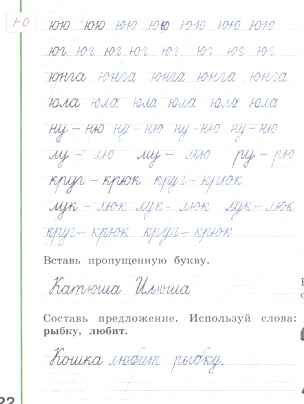 ю ю
юю юю юю юю юю юю юю
юг юг юг юг юг юг юг юг
юнга юнга юнга юнга юнга
юла юла юла юла юла юла
ну – ню ну – ню ну – ню ну – ню
лу – лю лу – лю ру – рю
круг – крюк круг – крюк
лук – люк лук – люк лук – люк
круг – крюк круг – крюк
Вставь пропущенную букву.
Катюша Илюша
Составь предложение. Используй слова:
рыбку, любит.
Кошка любит рыбку.
22